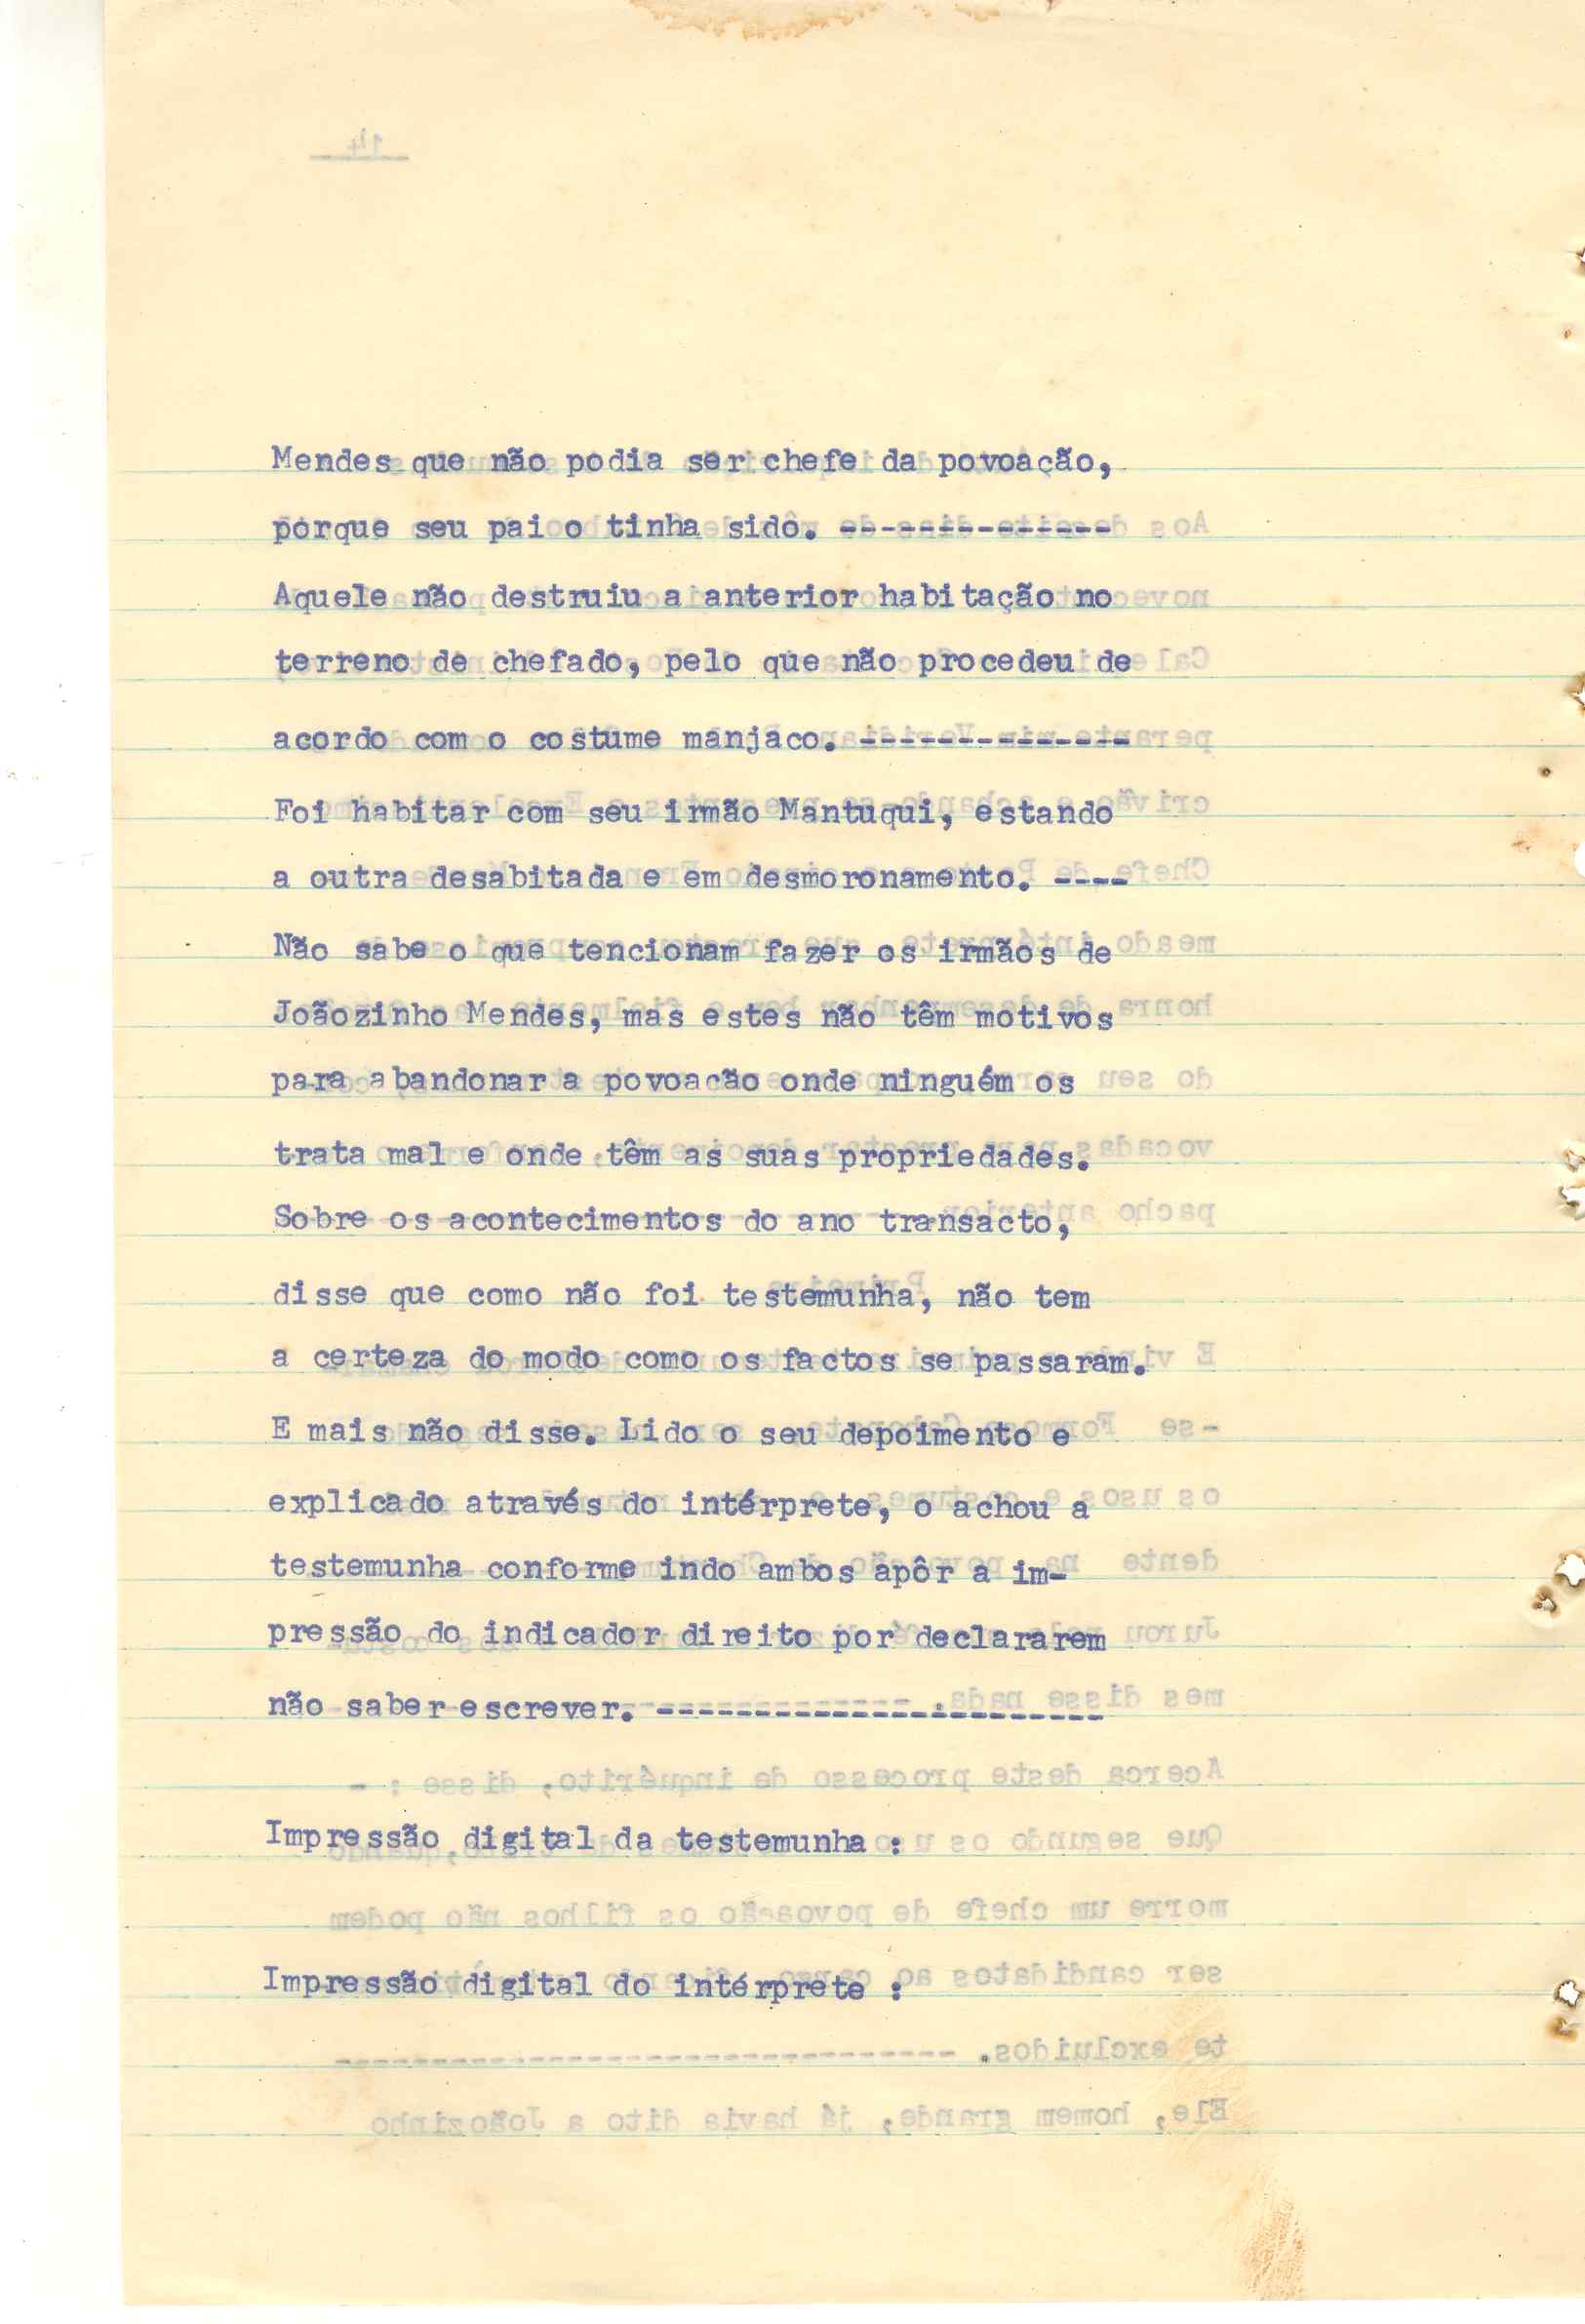 Mendes que não podia ser chefe da povoação,
porque seu pai o tinha sido. --------------
Aquele não destruiu a anterior habitação no
terreno de chefado, pelo que não procedeu de
acordo com o costume manjaco. --------------
Foi habitar com seu irmão Mantuqui, estando
a outra desabitada e em desmoronamento. ----
Não sabe o que tencionam fazer os irmãos de
Joãozinho Mendes, mas estes não têm motivos
para abandonar a povoação onde ninguém os
trata mal e onde têm as suas propriedades.
Sobre os acontecimentos do ano transacto,
disse que como não foi testemunha, não tem
a certeza do modo como os factos se passaram.
E mais não disse. Lido o seu depoimento e
explicado através do intérprete, o achou a
testemunha conforme indo ambos apôr a im-
pressão do indicador direito por declararem
não saber escrever. -----------------------
Impressão digital da testemunha :
Impressão digital do intérprete :